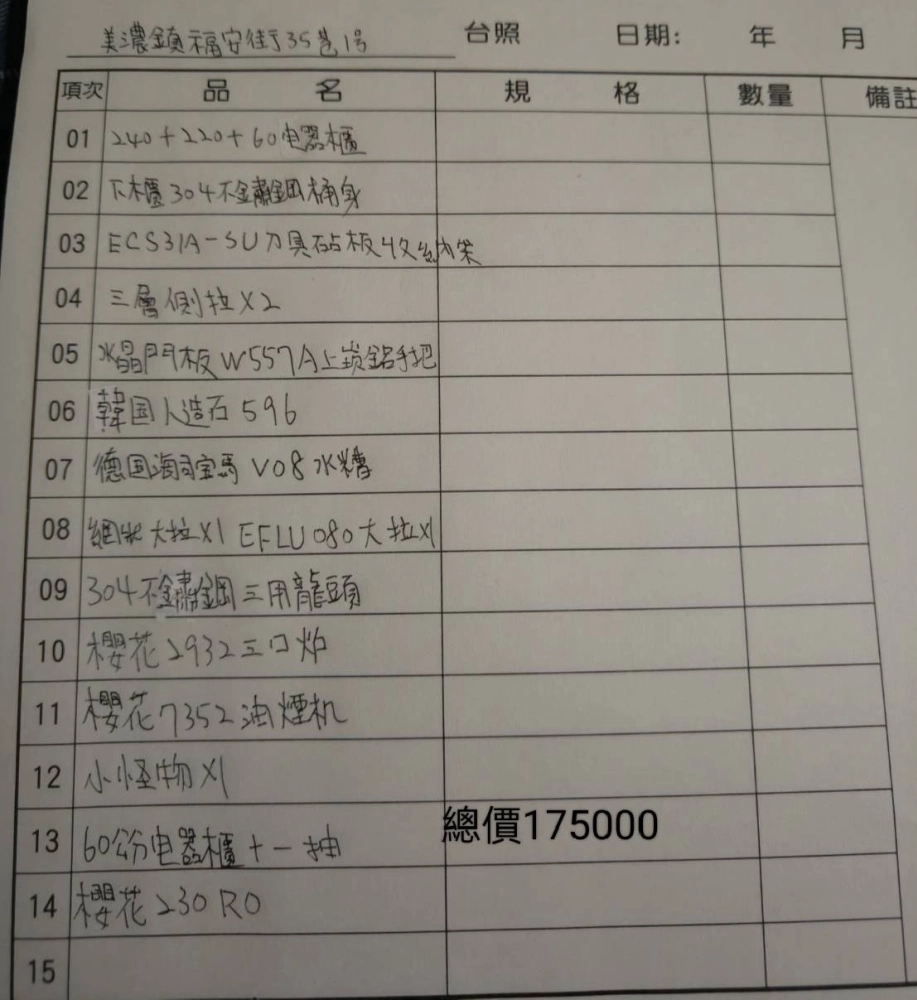 美濃鎮福安街35巷1号 台照 日期: 年 月
項次 品名 規格 數量 備註
01 240+220+60电器櫃
02 下櫃304不鏽鋼桶身
03 ECS31A-SU刀具砧板收納架
04 三層側拉X2
05 水晶門板W557A上崁鋁手把
06 韓国人造石596
07 德国海司宝馬V08水糟
08 大拉X1 EFLU080大拉X1
09 304不鏽鋼三用龍頭
10 櫻花2932三口炉
11 櫻花7352油煙机
12 小怪物X1
13 60公分电器櫃+一抽 總價175000
14 櫻花230RO
15